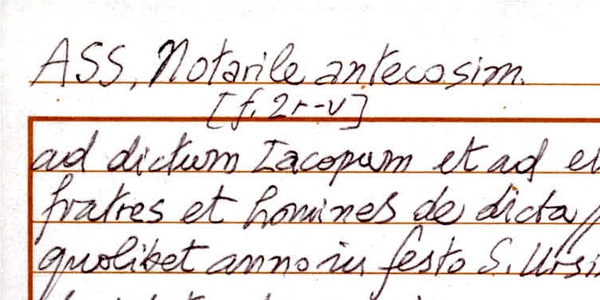 ASS, Notarile antecosim.
[f. 2r-v]
ad dictum Iacopum et ad
fratres et homines de dicta
quolibet anno in festo S. Ursi